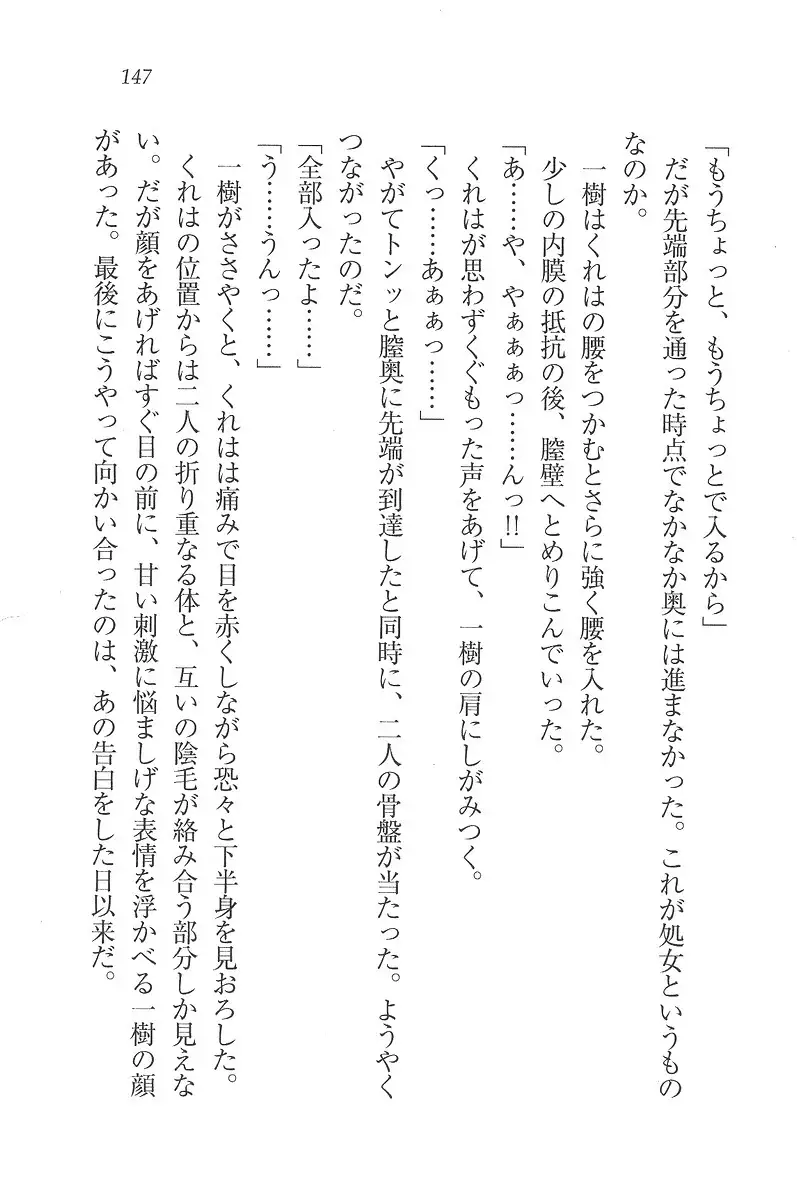 147
「もうちょっと、もうちょっとで入るから」
だが先端部分を通った時点でなかなか奥には進まなかった。これが処女というもの
なのか。
一樹はくれはの腰をつかむとさらに強く腰を入れた。
少しの内膜の抵抗の後、膣壁へとめりこんでいった。
「あ……や、やぁぁぁっ……んっ!!」
くれはが思わずくぐもった声をあげて、一樹の肩にしがみつく。
「くっ……あぁぁっ……」
やがてトンッと膣奥に先端が到達したと同時に、二人の骨盤が当たった。ようやく
つながったのだ。
「全部入ったよ……」
「う……うんっ……」
一樹がささやくと、くれはは痛みで目を赤くしながら恐々と下半身を見おろした。
くれはの位置からは二人の折り重なる体と、互いの陰毛が絡み合う部分しか見えな
い。だが顔をあげればすぐ目の前に、甘い刺激に悩ましげな表情を浮かべる一樹の顔
があった。最後にこうやって向かい合ったのは、あの告白をした日以来だ。